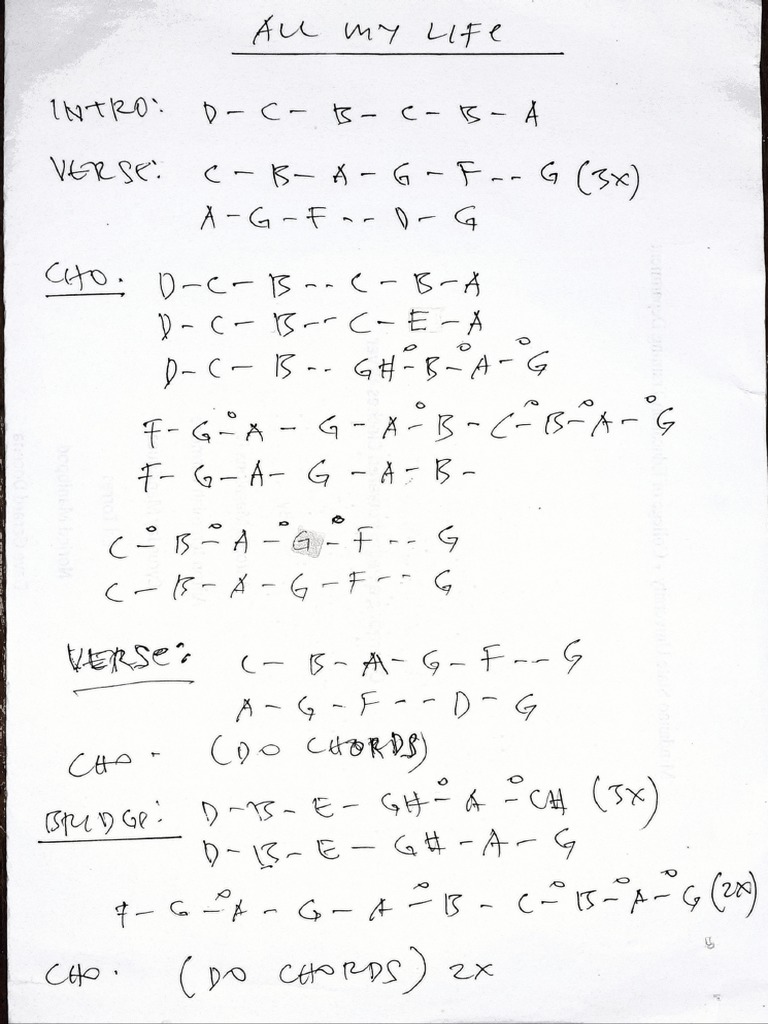 ALL MY LIFE
INTRO: D - C - B - C - B - A
VERSE: C - B - A - G - F -- G (3X)
A - G - F -- D - G
CHO. D - C - B -- C - B - A
D - C - B -- C - E - A
D - C - B -- G# -° B -° A -° G
F - G -° A - G - A -° B - C -° B -° A -° G
F - G - A - G - A - B -
C -° B -° A -° G -° F -- G
C - B - A - G - F -- G
VERSE: C - B - A - G - F -- G
A - G - F -- D - G
CHO - (DO CHORDS)
BRIDGE: D - B - E - G# -° A -° C# (3X)
D - B - E - G# - A - G
F - G -° A - G - A -° B - C -° B -° A -° G (2X)
CHO. (DO CHORDS) 2X